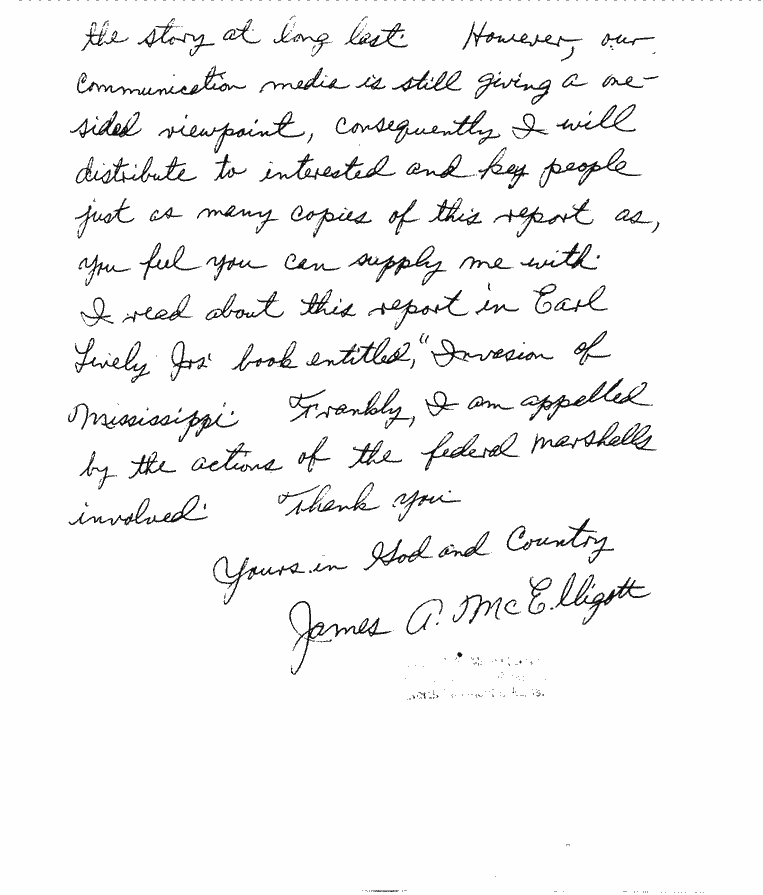 the story at long last. However, our
communication media is still giving a one-
sided viewpoint, consequently I will
distribute to interested and key people
just as many copies of this report as,
you feel you can supply me with.
I read about this report in Earl
Lively Jrs' book entitled, "Invasion of
Mississippi. Frankly, I am appelled
by the actions of the federal marshells
involved. Thank you
Yours in God and Country
James A. McElligott